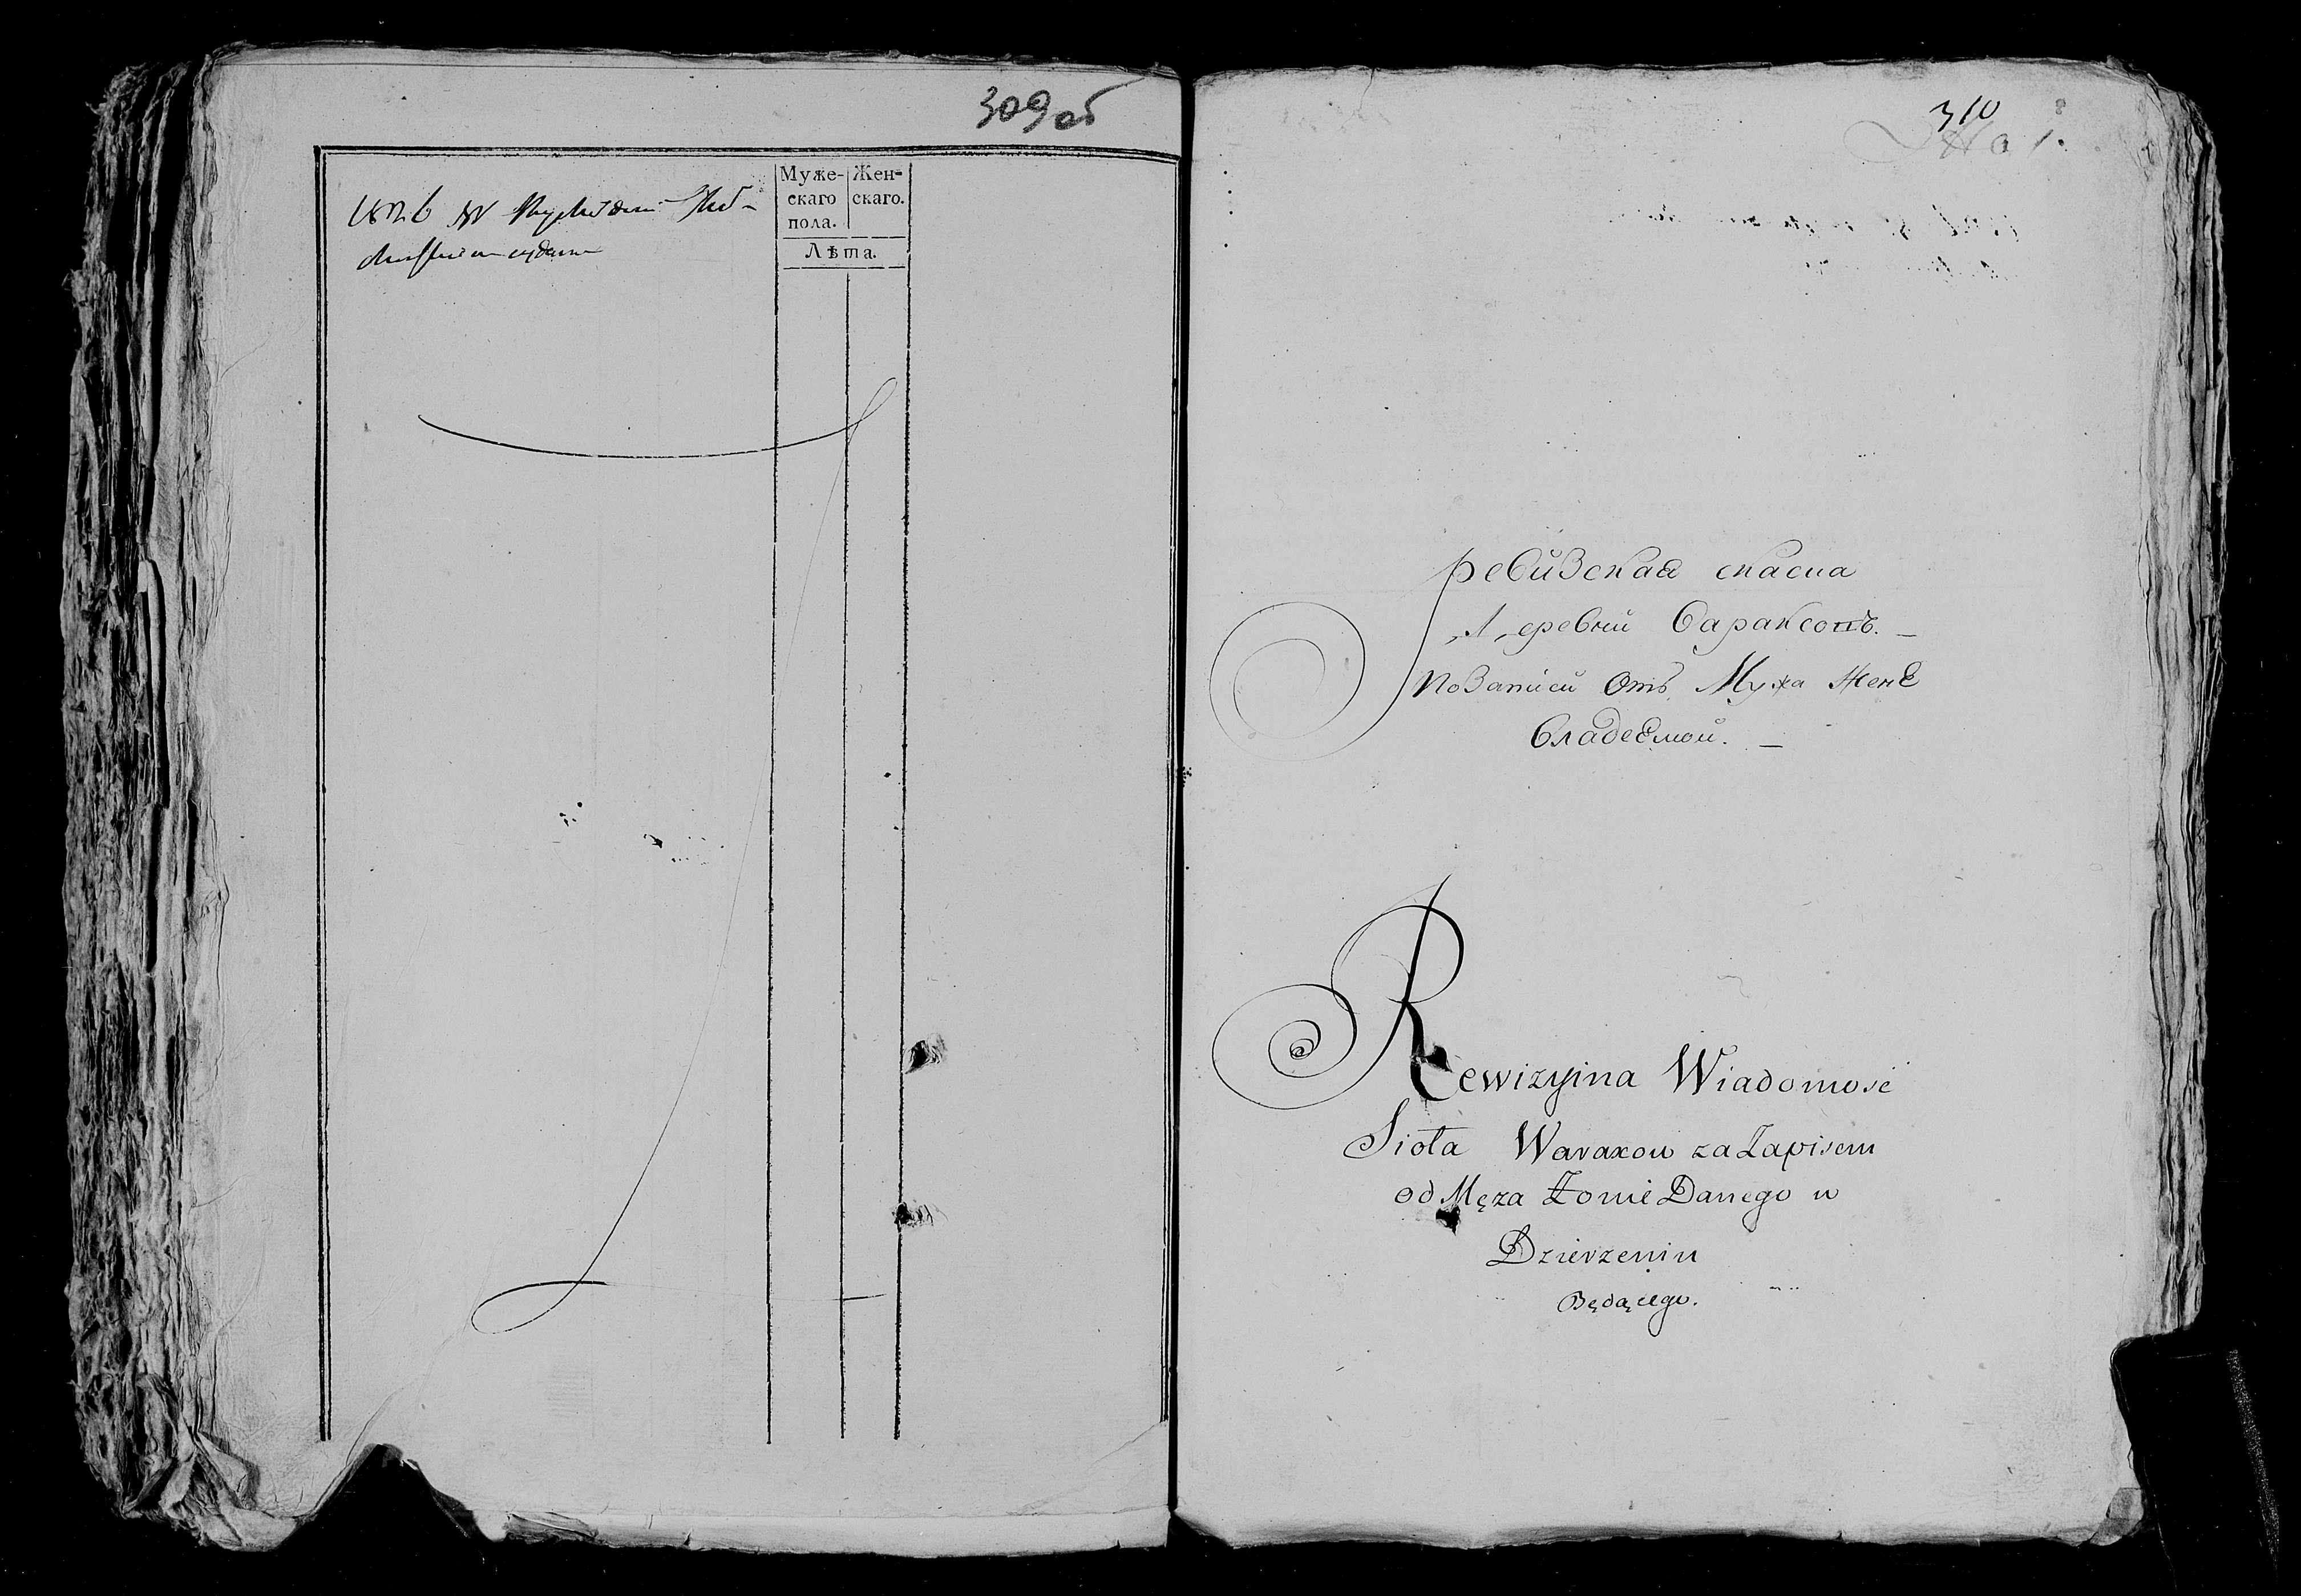 309 об
Муже-
скаго
пола.
Жен-
скаго.
Лѣта.
310
ревизская скаска
Деревни Вараксонъ. —
по записи Отъ Мужа Жене
Владеемой. —
Rewizyina Wiadomość
Sioła Waraxow za Zapisem
od Męza Zonie Danego w
Dzierzeniu
Będącego.